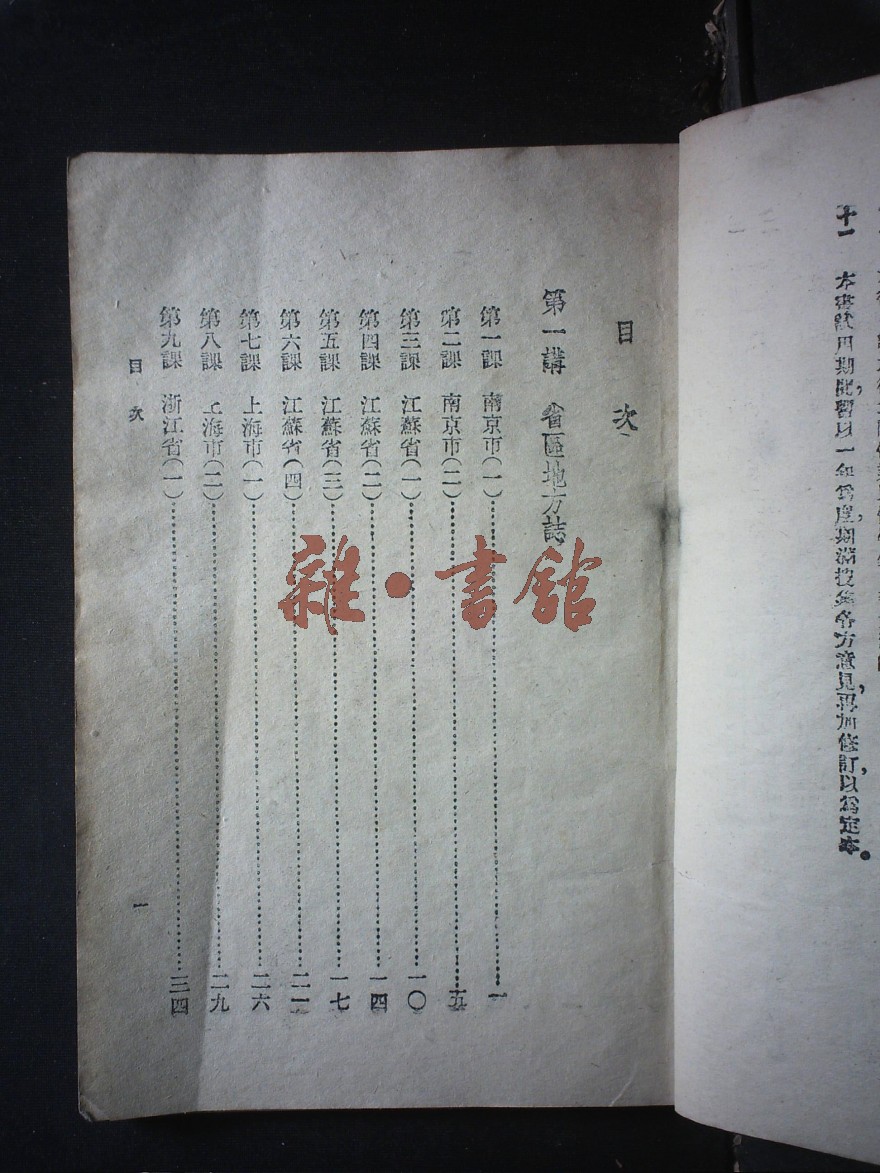 十一　本書試用期間暫以一年爲度,期滿後彙各方意見,再加修訂,以爲定本。
目次
第一講　省區地方誌
第一課　南京市(一)……一
第二課　南京市(二)……五
第三課　江蘇省(一)……一〇
第四課　江蘇省(二)……一四
第五課　江蘇省(三)……一七
第六課　江蘇省(四)……二一
第七課　上海市(一)……二六
第八課　上海市(二)……二九
第九課　浙江省(一)……三四
目次
一
雜·書館